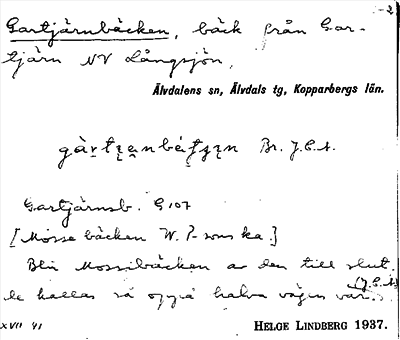 Gartjärnbäcken, bäck från Gar-
tjärn NV Långsjön,
Älvdalens sn, Älvdals tg, Kopparbergs län.
Br. J.E.A.
Gartjärnsb. G 107
[Mosse bäcken W. P-sonska.]
Blir Mossibäcken av den till slut.
de kallas så
halva vägen
(J.E.A)
XVII 41
HELGE LINDBERG 1937.